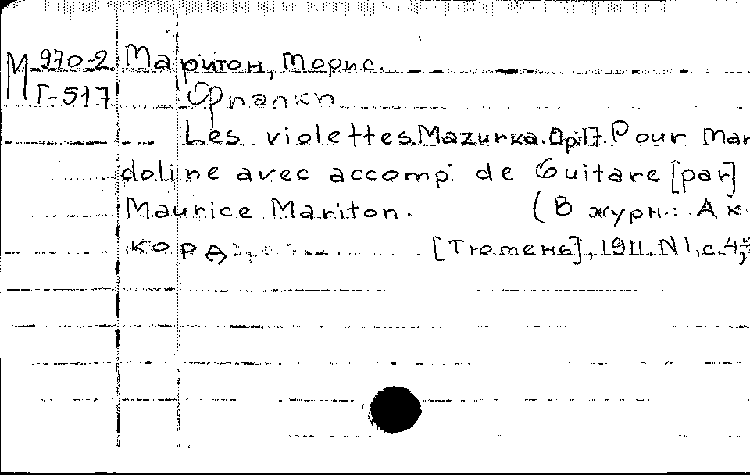 М 970-2 Маритон, Морис.
Г-517 Фиалки
Les violettes. Mazurka. Op.17. Pour Man
doline avec accomp. de Guitare [par]
Maurice Mariton. (В журн.: Ак
корд, [Тюмень], 1911. N1, с. 4,